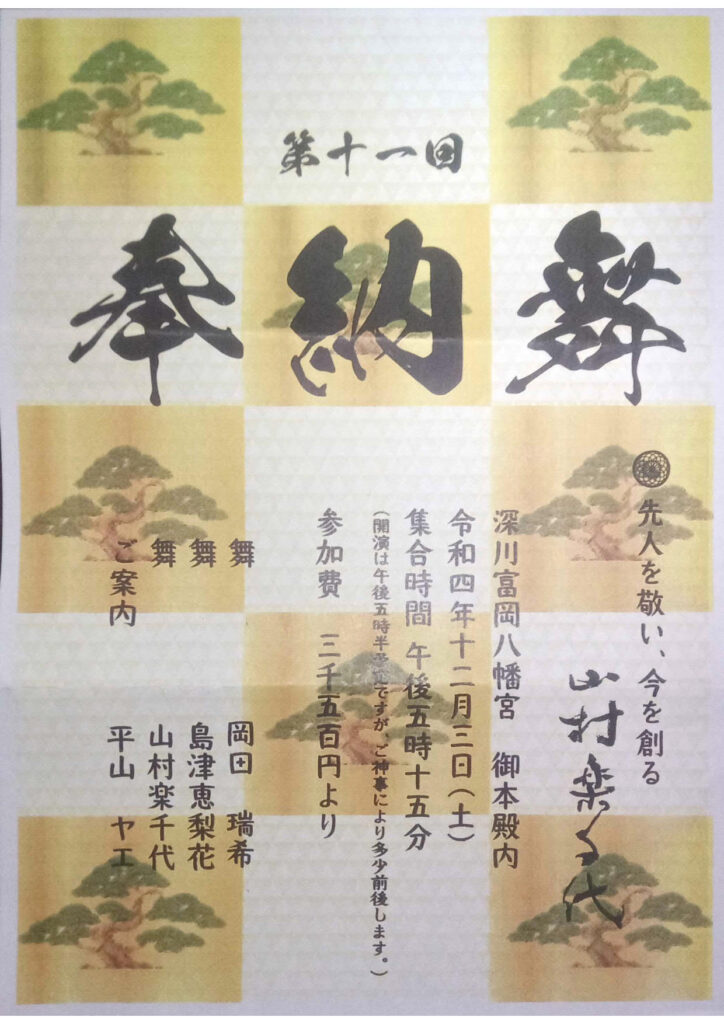 第十一回
奉納舞
先人を敬い、今を創る
山村楽千代
深川富岡八幡宮 御本殿内
令和四年十二月三日(土)
集合時間 午後五時十五分
(開演は午後五時半予定ですが、ご神事により多少前後します。)
参加費 三千五百円より
舞 岡田 瑞希
舞 島津恵梨花
舞 山村楽千代
ご案内 平山 ヤエ